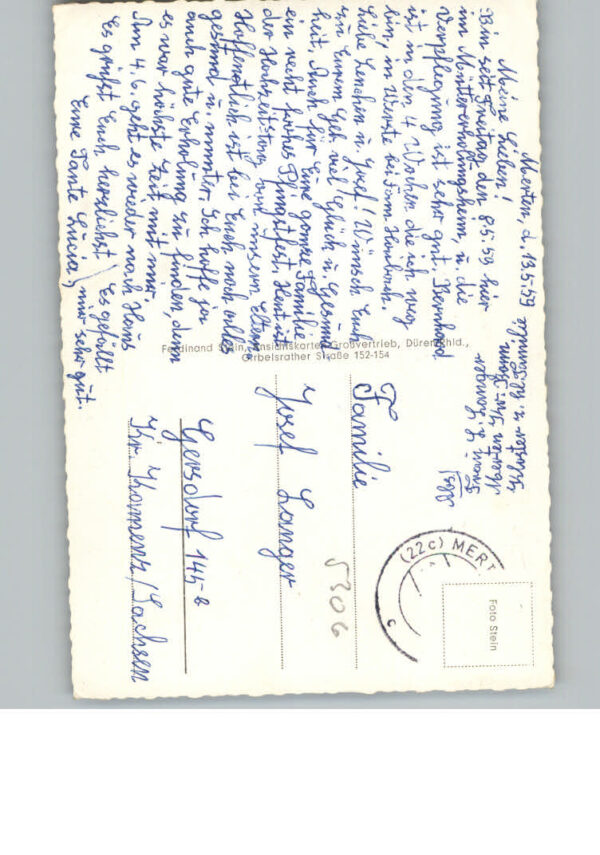 Merten, d. 13.5.59
Meine Lieben!
Bin seit Freitag den 8.5.59 hier
im Müttererholungsheim, u. die
Verpflegung ist sehr gut. Bernhard
ist in den 4 Wochen die ich weg
bin, in Werste bei Fam. Heinbuch.
Liebe Lenchen u. Josef! Wünsch Euch
zu Eurem Geb. viel Glück u. Gesund-
heit. Auch für Eure ganze Familie
ein recht frohes Pfingstfest. Heut ist
der Hochzeitstag von unsern Eltern.
Hoffentlich ist bei Euch noch alles
gesund u. munter. Ich hoffe ja
auch gute Erholung zu finden, denn
es war höchste Zeit mit mir.
Am 4.6. geht es wieder nach Haus
Es grüßt Euch herzlichst
Eure Tante Lucia,
Es gefällt
mir sehr gut.
Abs!
Frau L.
Merten Kr. Bonn
Kloster z. hl. Familie
Ferdinand Stein, Ansichtskarten-Großvertrieb, Düren/Rhld.,
Girbelsrather Straße 152-154
(22c) MERT
c
Foto Stein
5306
Familie
Josef Langer
Gersdorf 145-b
Kr. Kamenz/Sachsen